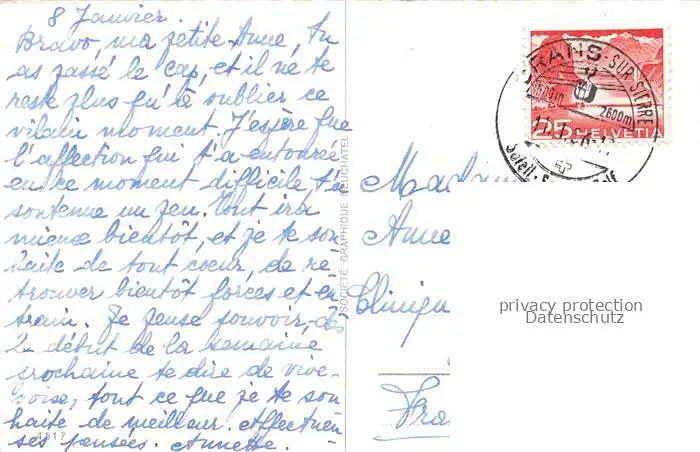 8 Janvier.
Bravo, ma petite Anne, tu
as passé le cap, et il ne te
reste plus qu'à oublier ce
vilain moment. J'espère que
l'affection qui t'a entourée
en ce moment difficile t'a
soutenue un peu. Tout ira
mieux bientôt, et je te sou
haite de tout coeur, de re
trouver bientôt forces et en
train. Je pense pouvoir,
début de la semaine
prochaine te dire de vive
voix, tout ce que je te sou
haite de meilleur. Affectueu
ses pensées. Annette.
A 517
SOCIÉTÉ GRAPHIQUE NEUCHATEL
Madame
Anne
Cliniqu
Fra
CRANS-SUR-SIERRE
1500m
2600m
25 HELVETIA
Soleil
privacy protection
Datenschutz